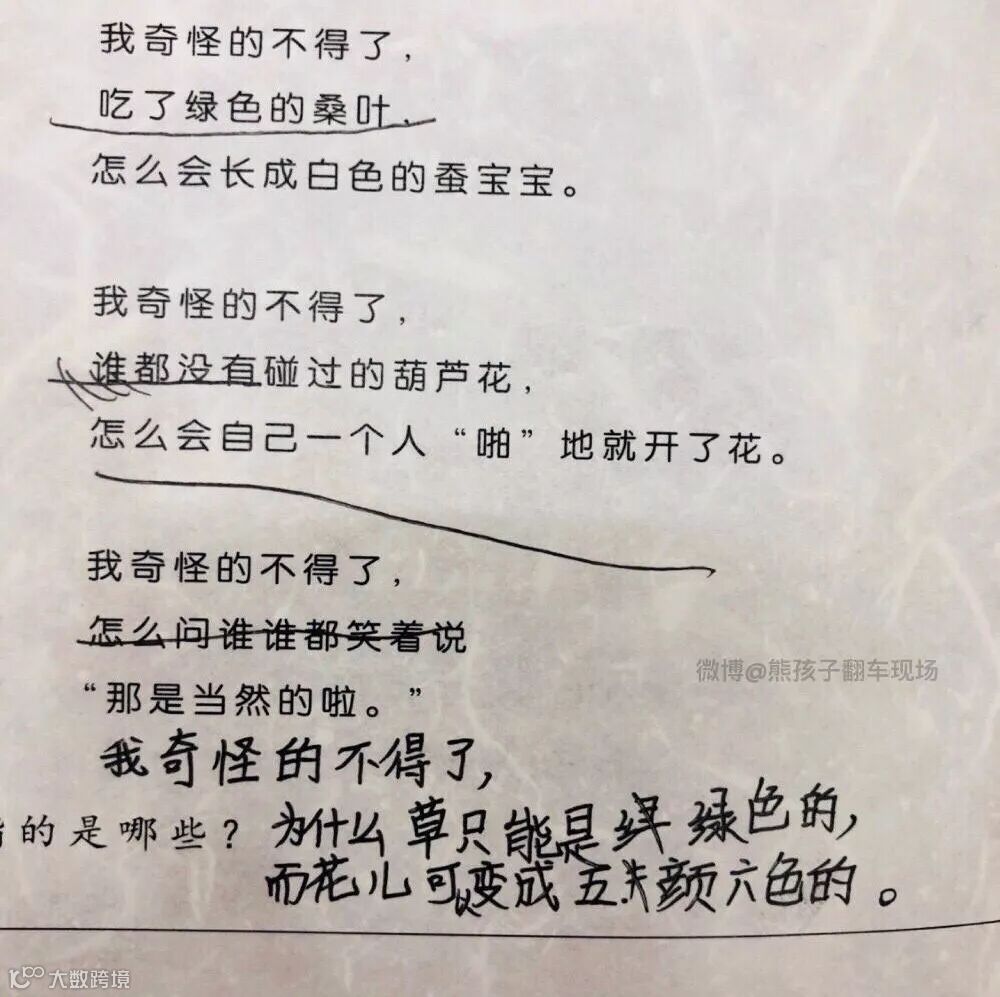 我奇怪的不得了，
吃了绿色的桑叶，
怎么会长成白色的蚕宝宝。
我奇怪的不得了，
谁都没有碰过的葫芦花，
怎么会自己一个人“啪”地就开了花。
我奇怪的不得了，
怎么问谁谁都笑着说
“那是当然的啦。”
微博@熊孩子翻车现场
我奇怪的不得了，
的是哪些？
为什么草只能是绿色的，
而花儿可以变成五颜六色的。
大数跨境